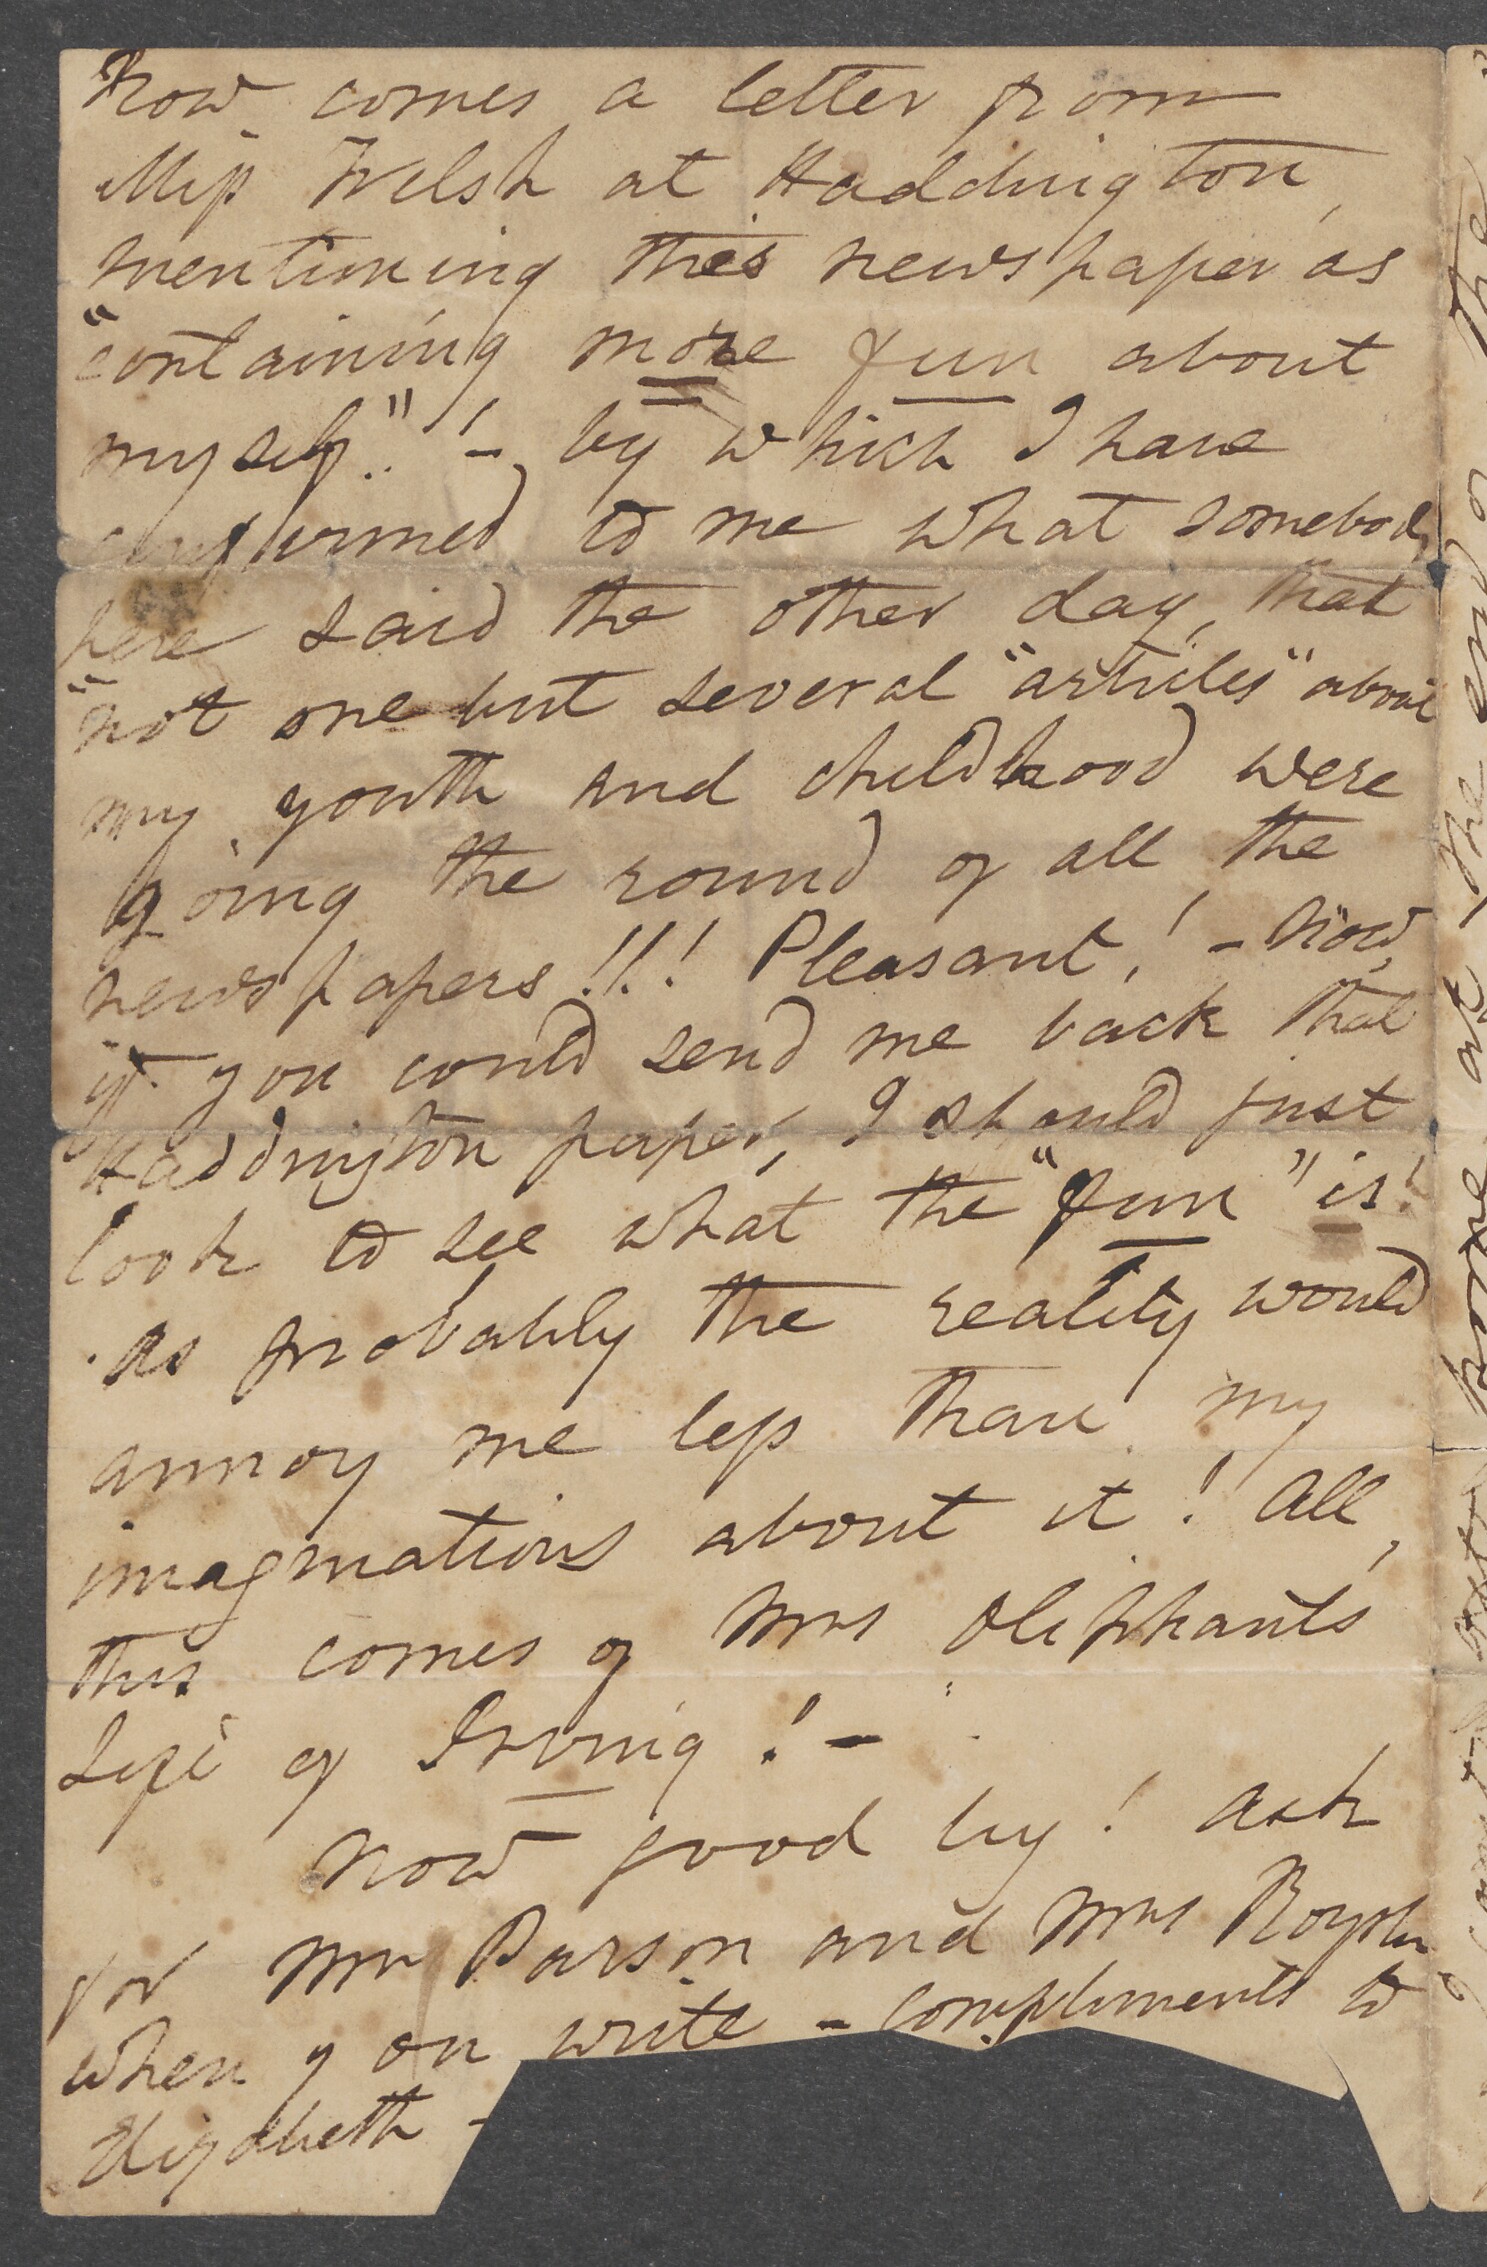 Now comes a letter from
Miss Welsh at Haddington,
mentioning this newspaper as
"containing more fun about
myself"! – by which I have
confirmed to me what somebody
here said the other day, that
"not one but several "articles" about
my youth and childhood were
going the round of all the
newspapers!!! Pleasant! – Now,
if you could send me back that
Haddington paper, I should just
look to see what the "fun" is!
as probably the reality would
annoy me less than my
imaginations about it! All,
this comes of Mrs Oliphants
Life of Irving! –
Now good by! Ask
for Mr Barson and Mrs Royston
when you write – compliments to
Elizabeth –
the end of the
at
home